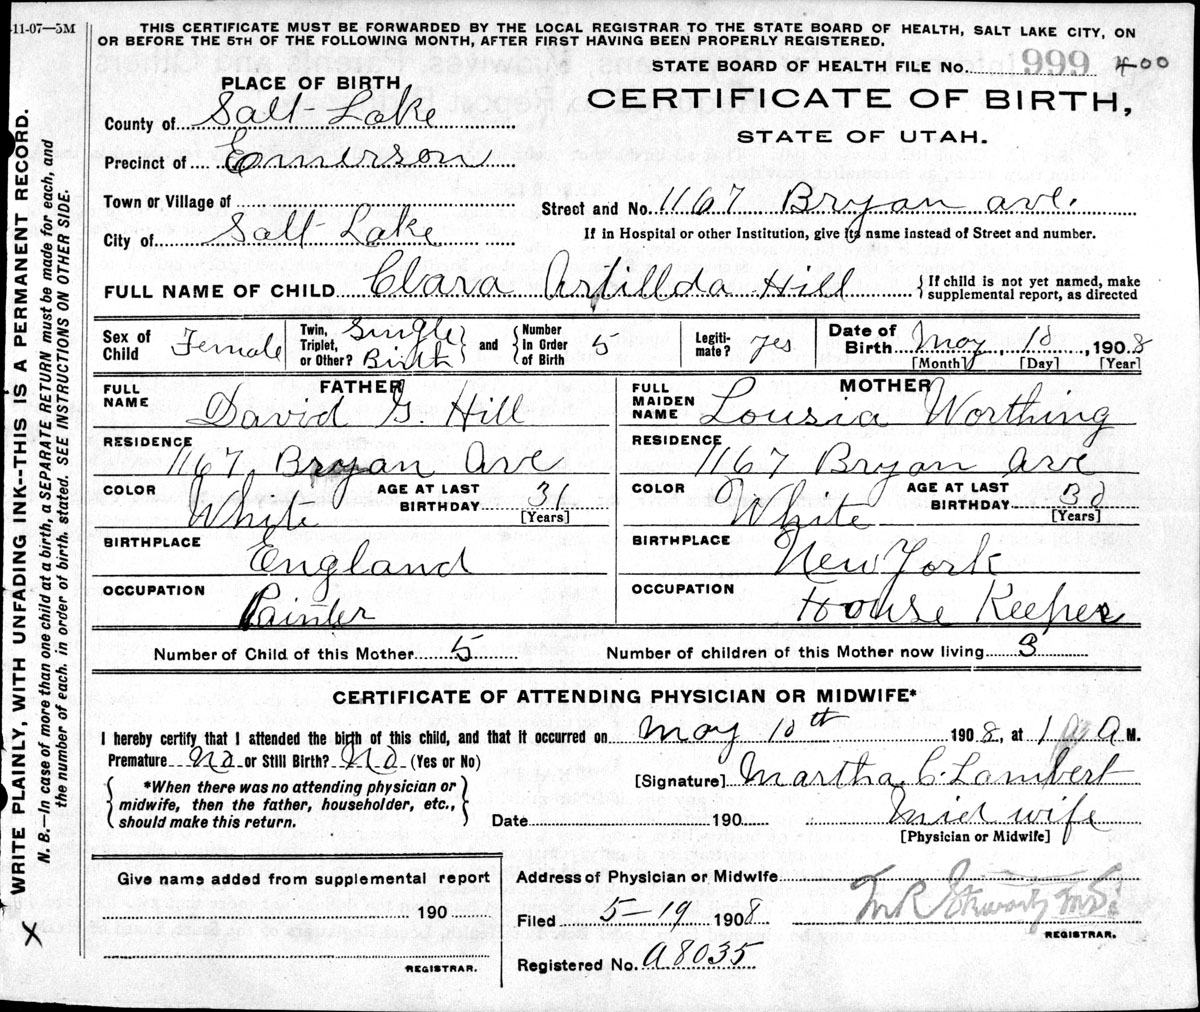 -11-07—5M
THIS CERTIFICATE MUST BE FORWARDED BY THE LOCAL REGISTRAR TO THE STATE BOARD OF HEALTH, SALT LAKE CITY, ON
OR BEFORE THE 5TH OF THE FOLLOWING MONTH, AFTER FIRST HAVING BEEN PROPERLY REGISTERED.
STATE BOARD OF HEALTH FILE No. 999 400
PLACE OF BIRTH
CERTIFICATE OF BIRTH,
STATE OF UTAH.
County of Salt Lake
Precinct of Emerson
Town or Village of
Street and No. 1167 Bryan ave.
City of Salt Lake
If in Hospital or other Institution, give its name instead of Street and number.
FULL NAME OF CHILD Clara Artillda Hill { If child is not yet named, make
supplemental report, as directed
Sex of Child Female
Twin, Triplet, or Other? Single Birth
and
Number in Order of Birth 5
Legiti- mate? yes
Date of Birth May, 10, 1908
[Month] [Day] [Year]
FATHER
FULL NAME David G. Hill
MOTHER
FULL MAIDEN NAME Lousia Worthing
RESIDENCE 1167 Bryan Ave
RESIDENCE 1167 Bryan Ave
COLOR White AGE AT LAST BIRTHDAY 31 [Years]
COLOR White AGE AT LAST BIRTHDAY [Years]
BIRTHPLACE England
BIRTHPLACE New York
OCCUPATION Painter
OCCUPATION House Keeper
Number of Child of this Mother 5 Number of children of this Mother now living 3
CERTIFICATE OF ATTENDING PHYSICIAN OR MIDWIFE*
I hereby certify that I attended the birth of this child, and that it occurred on May 10th 1908, at 1 A M.
Premature No or Still Birth? No (Yes or No)
[Signature] Martha C. Lambert
*When there was no attending physician or
midwife, then the father, householder, etc.,
should make this return.
Date 190 Mid wife
[Physician or Midwife]
Give name added from supplemental report
190
REGISTRAR.
Address of Physician or Midwife
Filed 5-19 1908
REGISTRAR.
Registered No. A8035
WRITE PLAINLY, WITH UNFADING INK--THIS IS A PERMANENT RECORD.
N. B.—In case of more than one child at a birth, a SEPARATE RETURN must be made for each, and
the number of each, in order of birth, stated. SEE INSTRUCTIONS ON OTHER SIDE.
X